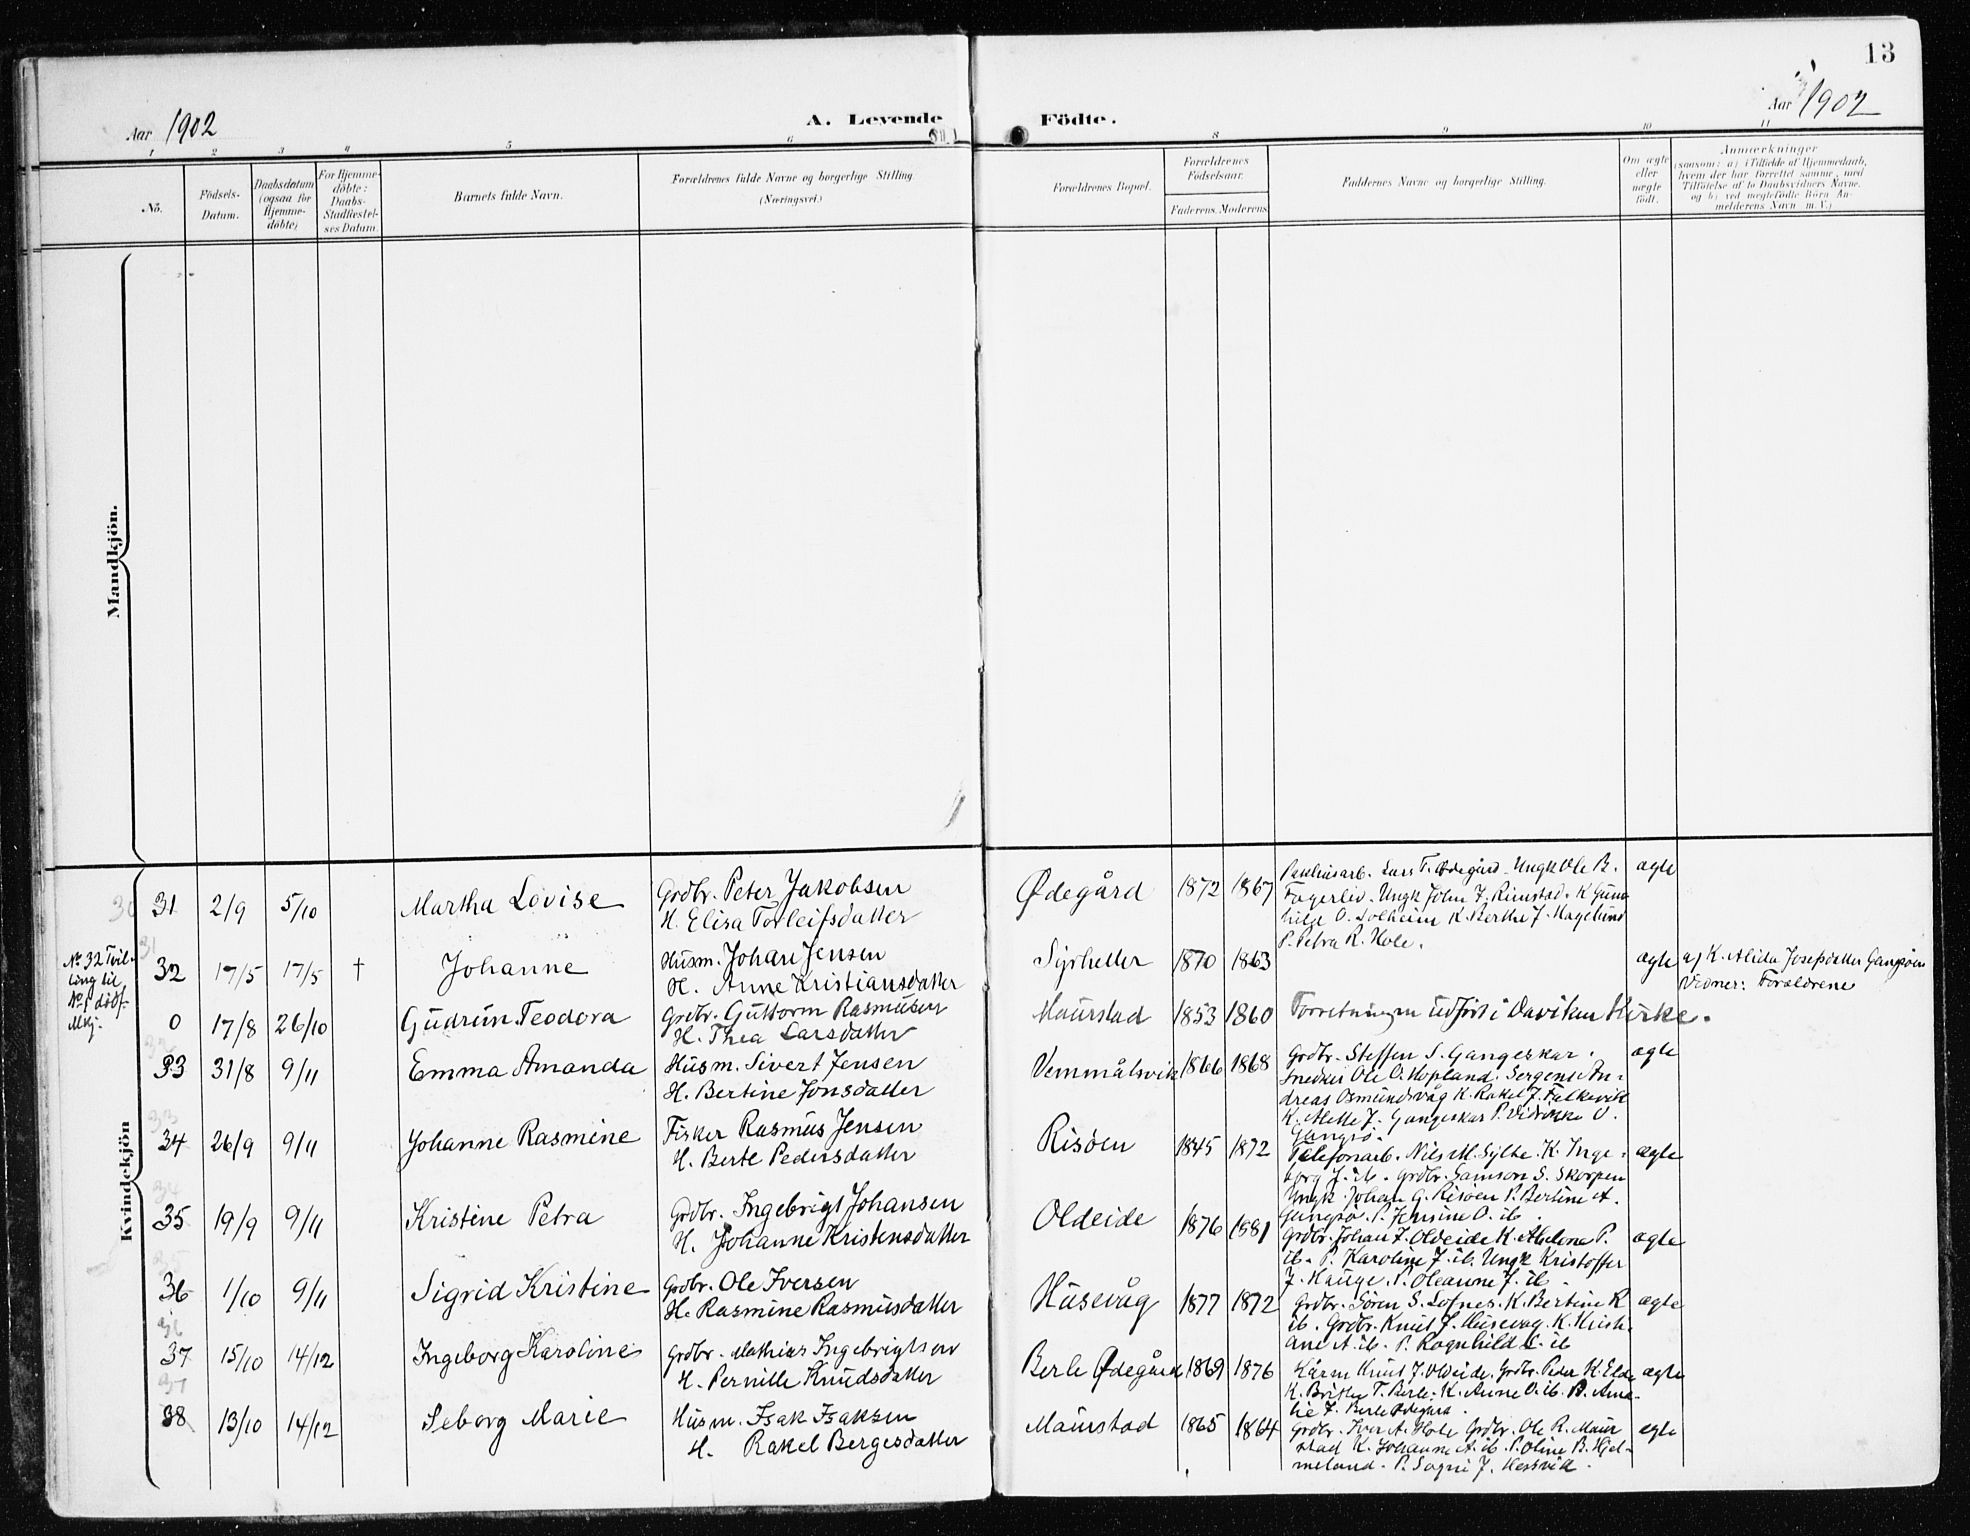 13
Aar 1902
A. Levende Födte.
Aar 1902
1 2 3 4 5 6 8 9 10 11
No.
Födsels-Datum.
Daabsdatum (ogsaa for Hjemme-döbte)
For Hjemme-döbte: Daabs-Stadfæstel-ses Datum.
Barnets fulde Navn.
Forældrenes fulde Navne og borgerlige Stilling.
(Næringsvei.)
Forældrenes Bopæl.
Forældrenes Födselsaar.
Faderens. Moderens.
Faddernes Navne og borgerlige Stilling.
Om ægte eller uægte födt.
Anmærkninger
(saasom: a) i Tilfælde af Hjemmedaab,
hvem der har forrettet samme, med
Tilföielse af to Daabsvidners Navne,
og b) ved uægtefödte Börn An-
melderens Navn m. V.)
Mandkjön.
Kvindekjön
31 2/9 5/10 Martha Lovise Grdbr. Peter Jakobsen Ødegård 1872 1867 Lars T. Ødegård. Ungk Ole B. ægte
H. Elisa Torleifsdatter Fagerlid. Ungk John J. Rimstad. K Gun-
hild O. Solheim K. Berthe J. Hagelund
P. Petra R. Hole.
No. 32 Tvil-
ling til
No. 1 dödf.
Mkj.
32 17/5 17/5 † Johanne Husm. Johan Jensen 1870 1863 ægte a) K. Alida Josefsdatter Gangsöen
H. Anne Kristiansdatter Vidner: Forældrene
0 17/8 26/10 Gudrun Teodora Grdbr. Guttorm Rasmusen Maurstad 1853 1860 Forretningen udfört i Daviken Kirke.
H. Thea Larsdatter
33 31/8 9/11 Emma Amanda Husm. Sivert Jensen Vemmålsvik 1866 1868 Grdbr. Steffen S. Gangeskar. ægte
H. Bertine Jonsdatter Snedker Ole O. Hopland. Sergent An-
dreas Osmundsvåg K. Rakel J. Falkevik
K. Alette J. Gangeskar P. O.
Gangsö.
34 26/9 9/11 Johanne Rasmine Fisker Rasmus Jensen Risöen 1845 1872 Telefonarb. Nils M. Sylte. K. Inge- ægte
H. Berte Pedersdatter borg J. ib. Grdbr. Samson S. Skorpen
Ungk. Johan G. Risöen P. Bertine A.
Gangsö. P. Jensine O. ib.
35 19/9 9/11 Kristine Petra Grdbr. Ingebrigt Johansen Oldeide 1876 1881 Grdbr. Johan J. Oldeide K. Abelone P. ægte
H. Johanne Kristensdatter ib. P. Karoline J. ib. Ungk Kristoffer
J. Hauge. P. Oleanne J. ib.
36 1/10 9/11 Sigrid Kristine Grdbr. Ole Iversen Husevåg 1877 1872 Grdbr. Sören S. Lofnes. K. Bertine R ægte
H. Rasmine Rasmusdatter ib. Grdbr. Knut J. Husevåg. K. Kristi-
ane A. ib. P. Ragnhild L. ib
37 15/10 14/12 Ingeborg Karoline Grdbr. Mathias Ingebrigtsen Berle Ødegård 1869 1876 Knut J. Oldeide. Grdbr. Peder K. Elde ægte
H. Pernille Knudsdatter K. Brithe T. Berle. K. Anne O. ib. P. Ama-
lie J. Berle Ødegård.
38 13/10 14/12 Seborg Marie Husm. Isak Isaksen Maurstad 1865 1864 Grdbr. Iver A. Hole Grdbr. Ole R. Maur- ægte
H. Rakel Bergesdatter stad K. Johanne A. ib. P. Oline B. Hjel-
meland. P. Sogni J. Hessvik.